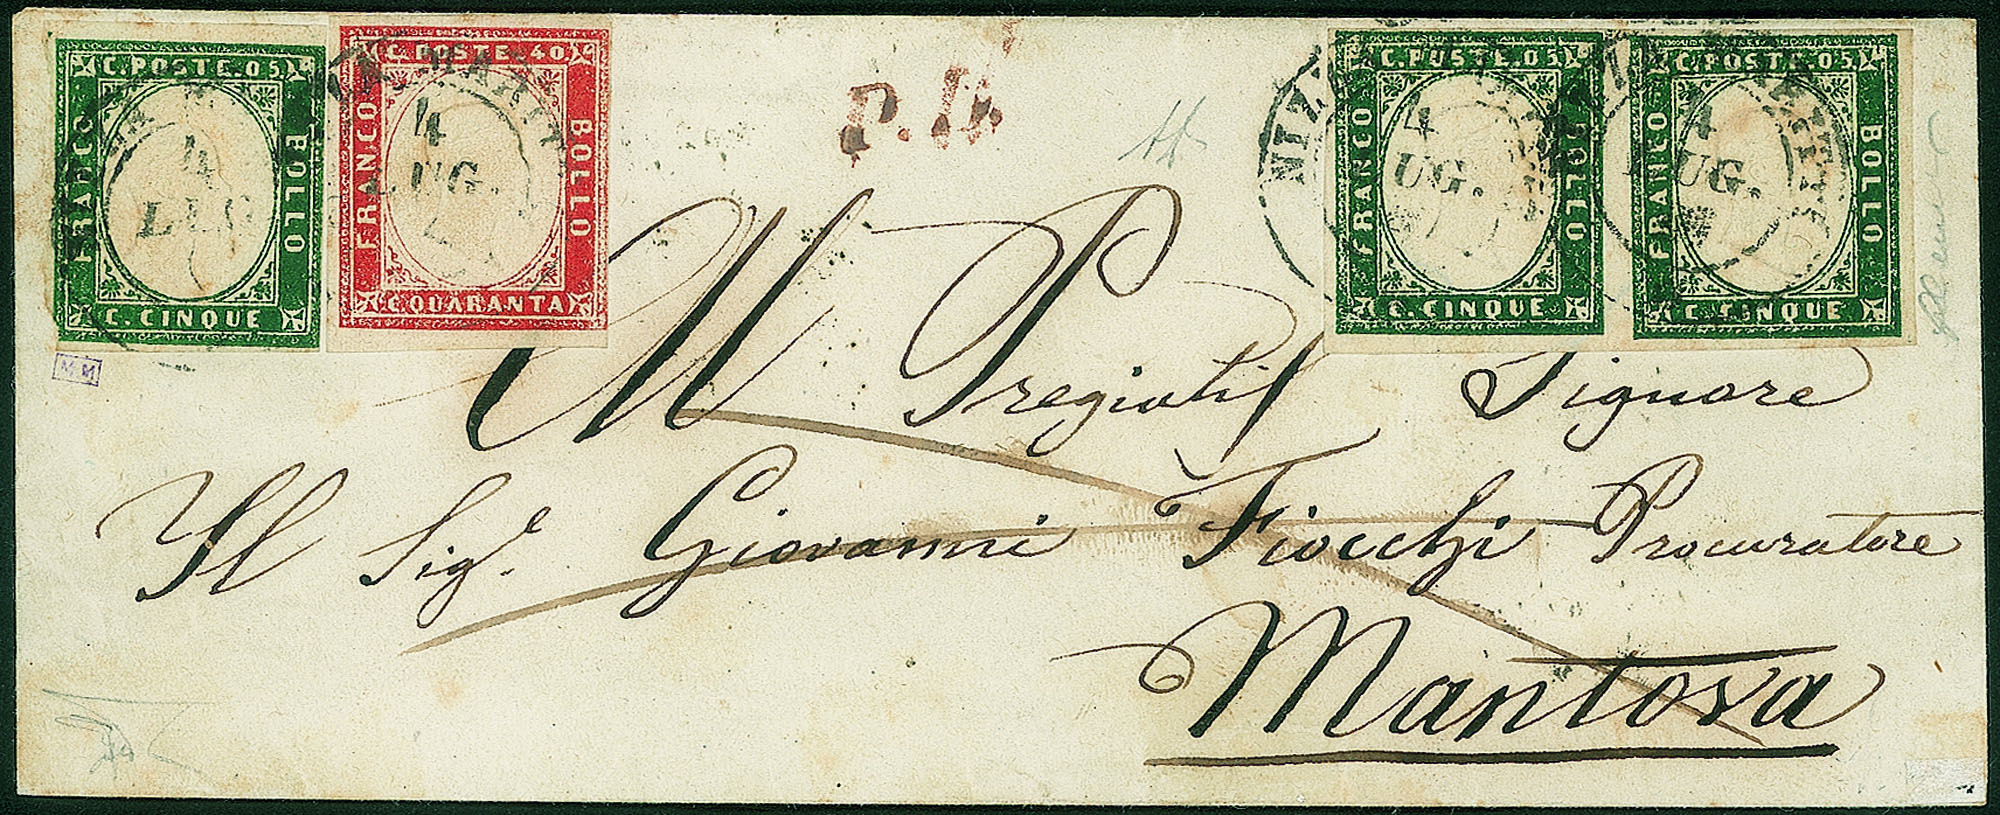 C. POSTE. 05
FRANCO
BOLLO
C. CINQUE
4
LUG
C. POSTE. 40
FRANCO
BOLLO
C. QUARANTA
4
LUG.
P. D.
C. POSTE. 05
FRANCO
BOLLO
C. CINQUE
4
UG.
C. POSTE. 05
FRANCO
BOLLO
C. CINQUE
4
LUG.
M. M
Al Pregiatis Signore
Il Sigr. Giovanni Fiocchi Procuratore
Mantova